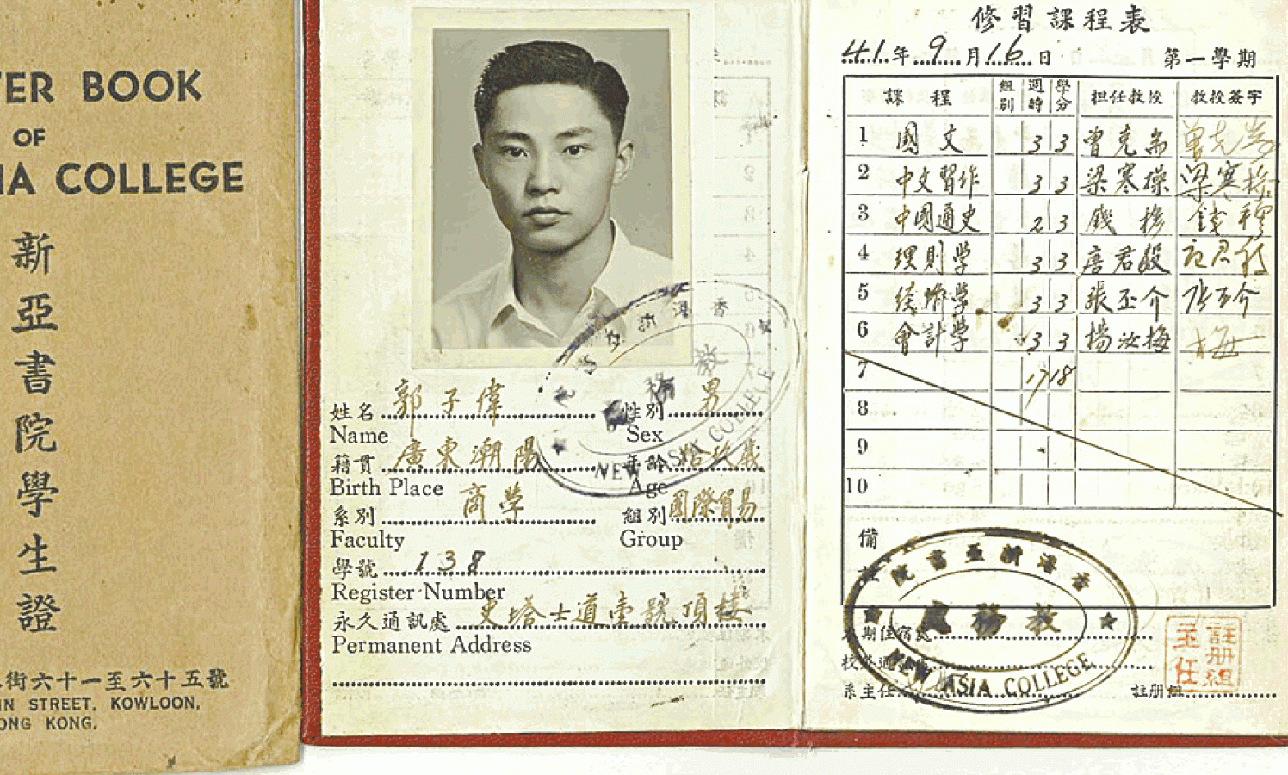 TER BOOK
OF
IA COLLEGE
新亞書院學生證
街六十一至六十五號
IN STREET, KOWLOON,
ONG KONG.
姓名 郭子偉 性別 男
Name Sex
籍貫 廣東潮陽 年齡 歲
Birth Place Age
系別 商学 組別 國際貿易
Faculty Group
學號 138
Register Number
永久通訊處 史塔士道壹號頂樓
Permanent Address
NEW ASIA COLLEGE
教務
修習課程表
41年9月16日 第一學期
課程 組別 週時 學分 担任教授 教授簽字
1 國文 3 3 曾克耑 曾克耑
2 中文習作 3 3 梁寒操 梁寒操
3 中國通史 2 3 錢穆 錢穆
4 理則学 3 3 唐君毅 唐君毅
5 經濟学 3 3 張丕介 張丕介
6 會計学 3 3 楊汝梅 梅
7 17 18
8
9
10
備
香港新亞書院
教務處
NEW ASIA COLLEGE
期住宿處
系主任 註册組
註册組主任